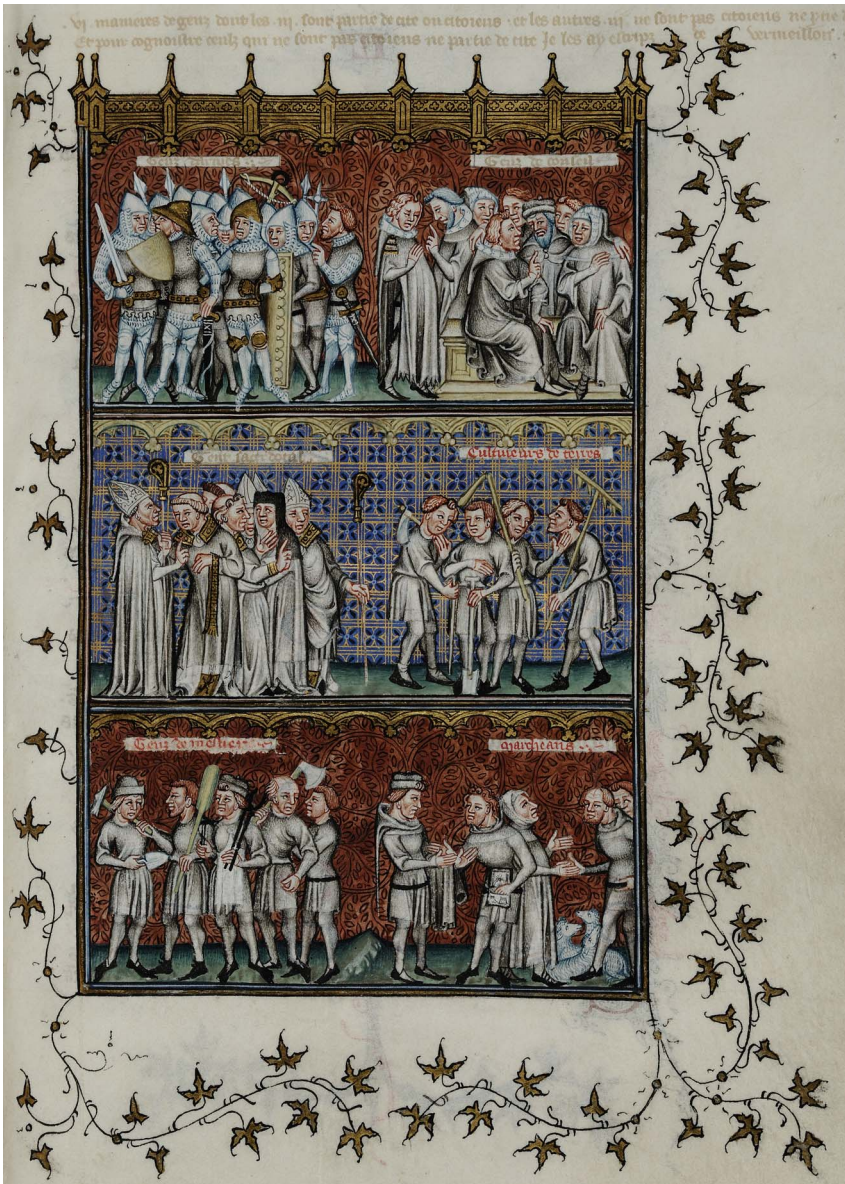 .vi. manieres de genz dont les .iii. sont partie de cite ou citoiens . et les autres .iii. ne sont pas citoiens ne
Et pour cognoistre ceulz qui ne sont pas citoiens ne partie de cite Je les ay escripz de vermeillon .
Genz d'armes
Genz de conseil
Genz sacerdotal
Cultiveurs de terres
Genz de mestier
Marcheans